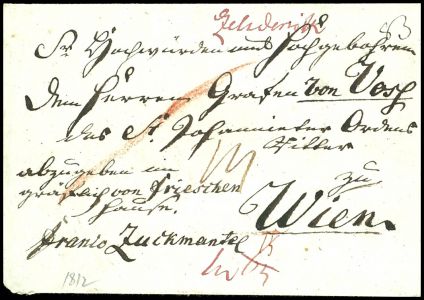 Zehdenick
Sr Hochwürden und Hochgebohren
dem Herren Grafen von Voss
des St. Johannieter Ordens
Ritter
abzugeben im
gräflich von Friesschen
Hause.
zu
Wien
franco Zuckmantel
1812